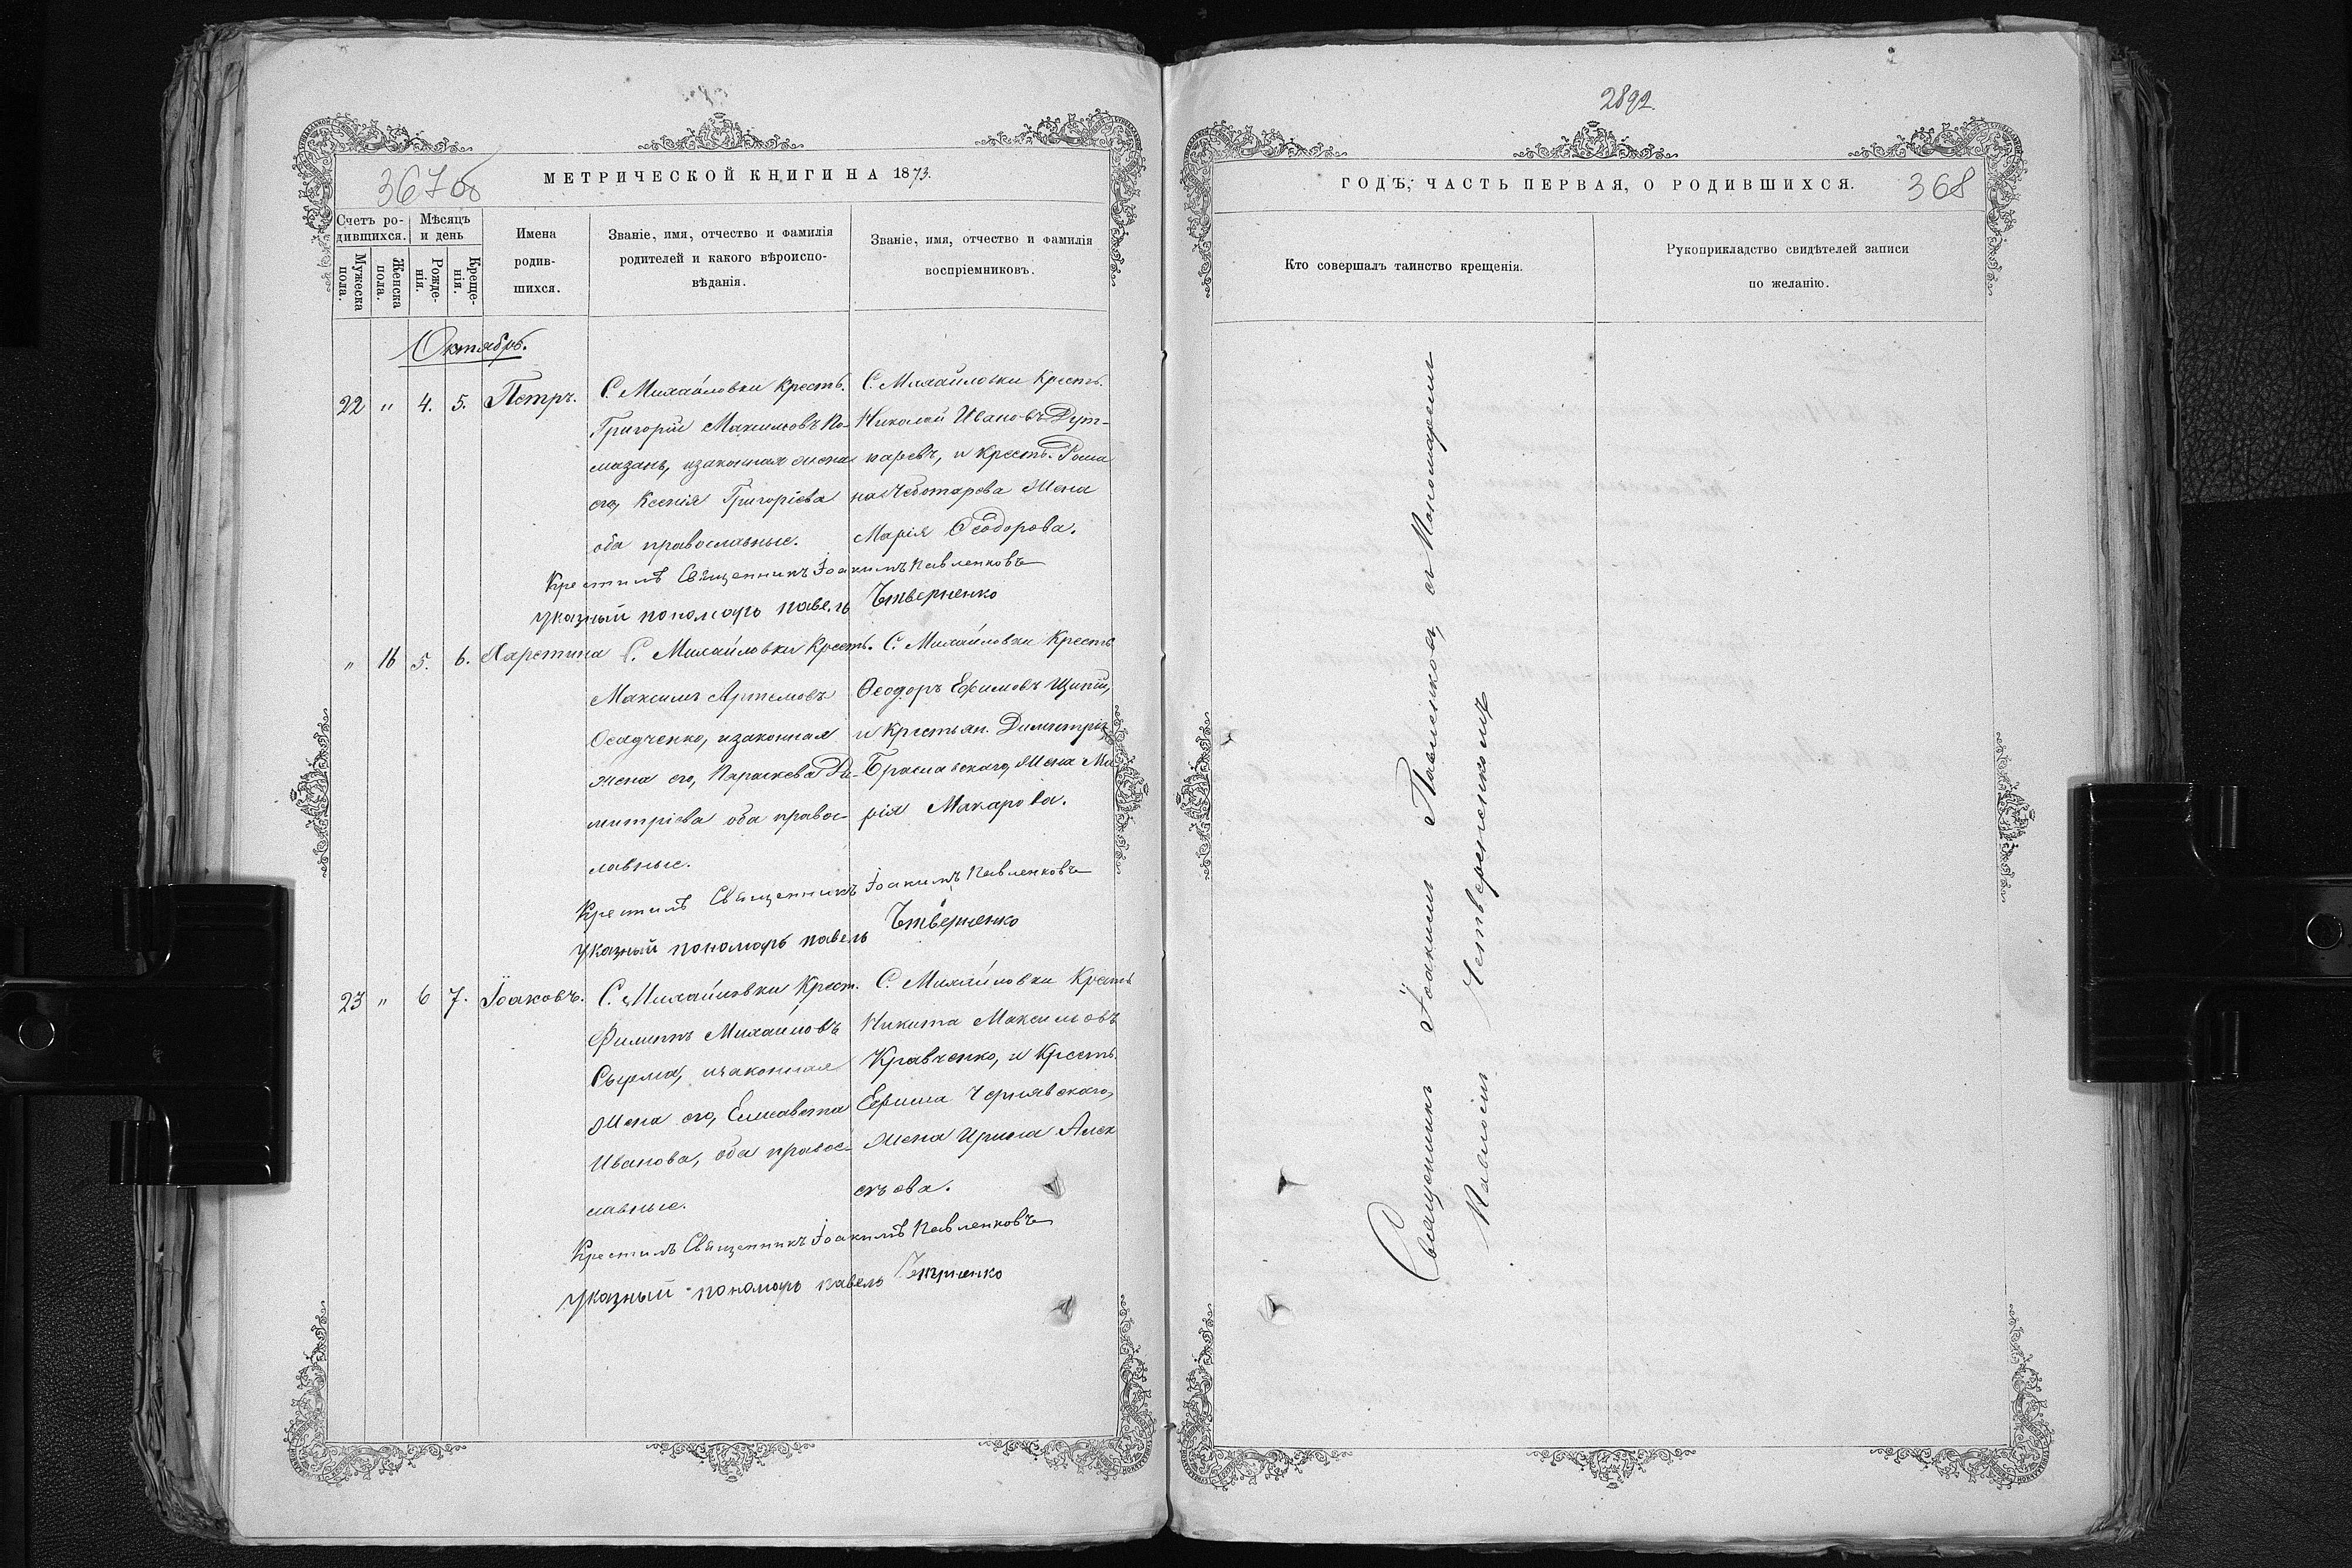 367об
МЕТРИЧЕСКОЙ КНИГИ НА 1873.
Счетъ ро-
дившихся.
Мѣсяцъ
и день
Мужеска
пола.
Женска
пола.
Рожде-
нія.
Креще-
нія.
Имена
родив-
шихся.
Званіе, имя, отчество и фамилія
родителей и какого вѣроиспо-
вѣданія.
Званіе, имя, отчество и фамилія
воспріемниковъ.
Октябрь.
22 " 4. 5. Петръ.
С. Михайловки Крестъ.
Григорій Максимовъ По-
мазань, изаконная жена
его, Ксенія Григоріева
оба православные.
С. Михайловки Крестъ.
Николай Ивановъ
и Крестъ. Рома
на Чеботарева Жена
Марія Ѳеодорова.
Крестилъ Священникъ Іоакимъ Павленковъ
указный пономарь павелъ Чтверненко
" 16 5. 6. Харетина
С. Михайловки Крестъ.
Максимъ Артемовъ
Осадченко, изаконная
жена его, Параскева Ди-
митріева оба правос-
лавные.
С. Михайловки Крестъ
Ѳеодоръ Ефимовъ
и Крестьян. Димитрія
Браславскаго, Жена Ма
рія Макарова.
Крестилъ Священникъ Іоакимъ Павленковъ
указный пономарь павелъ Чтверненко
23 " 6 7. Іоаковъ.
С. Михайловки Крест.
Филиппъ Михайловъ
изаконная
Жена его, Елисавета
Иванова, оба правос-
лавные.
С. Михайловки Крестъ
Никита Максимовъ
Кравченко, и Крестъ.
Ефима Чернявскаго,
Жена Ирина Алек
сѣева.
Крестилъ Священникъ Іоакимъ Павленковъ
указный пономарь павелъ
2892
ГОДЪ, ЧАСТЬ ПЕРВАЯ, О РОДИВШИХСЯ.
368
Кто совершалъ таинство крещенія.
Рукоприкладство свидѣтелей записи
по желанію.
Священникъ Іоакимъ Павленковъ, съ Пономаремъ
Павломъ Четверненкомъ